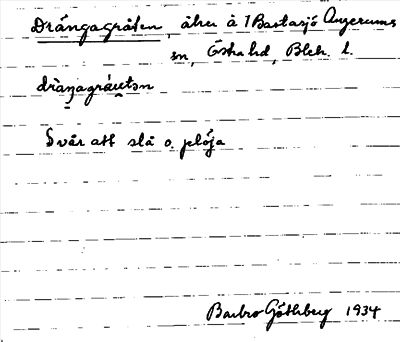 Drängagråten, åker å 1 Bastasjö Augerums
sn, Östra hd, Blek. l.
dràŋagráutən
Svår att slå o. plöja
Barbro Göthberg 1934